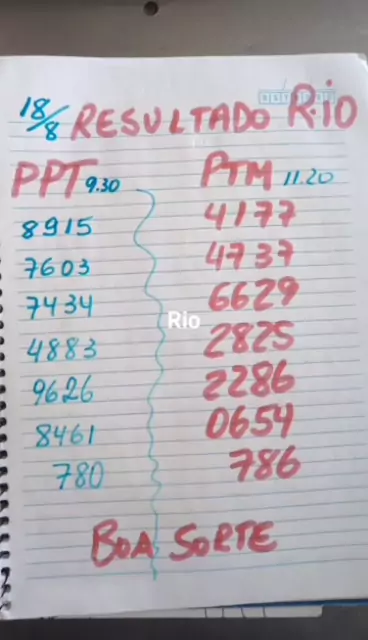 18/8 RESULTADO RIO
PPT 9.30
8915
7603
7434
4883
9626
8461
780
PTM 11.20
4177
4737
6629
2825
2286
0654
786
Rio
BOA SORTE